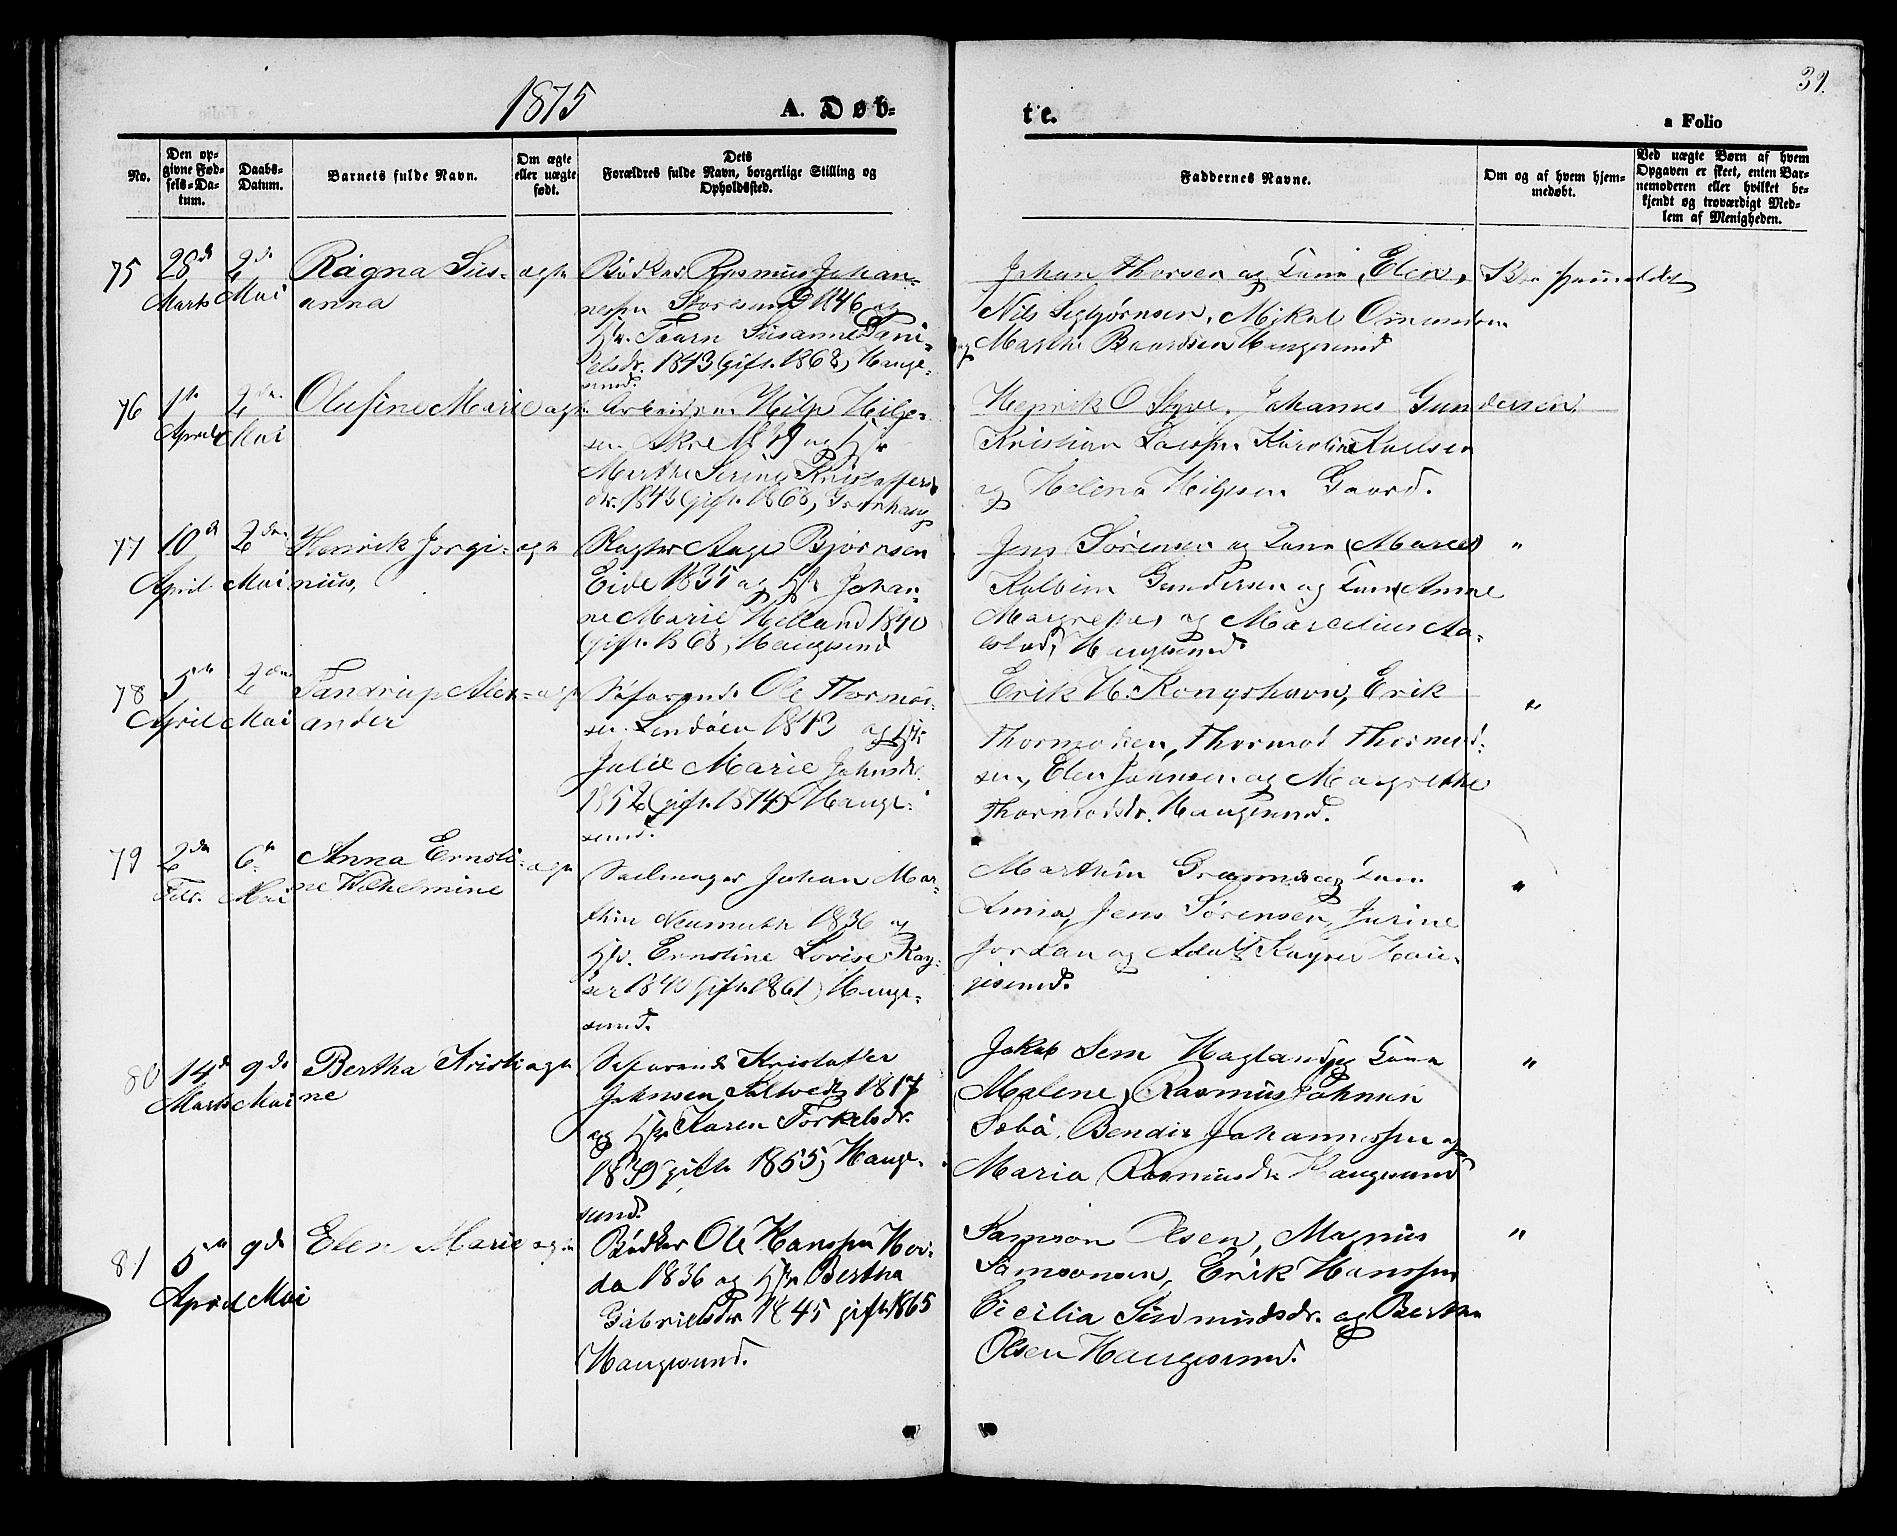 1875
A. Døb-
te.
39.
a Folio
No.
Den op-
givne Fød-
sels-Da-
tum.
Daabs-
Datum.
Barnets fulde Navn.
Om ægte
eller uægte
født.
Dets
Forældres fulde Navn, borgerlige Stilling og
Opholdssted.
Faddernes Navne.
Om og af hvem hjem-
medøbt.
Ved uægte Børn af hvem
Opgaven er skeet, enten Bar-
nemoderen eller hvilket be-
kjendt og troværdigt Med-
lem af Menigheden.
75
28de
Marts
2den
Mai
Ragna Sus-
anna
ægte
Bødker Rasmus Johan-
nessen Storesund 1846 og
Susanne Dani-
elsdr. 1843 (gift. 1868) Hauge-
sund.
Johan Thorsen og Kone, Elen,
Nils Mikal Omundsen
og Marthe Baardsen Haugesund
76
1te
April
2den
Mai
Olufine Marie
ægte
Arbeidsm. Hilje Hilje-
sen Akre 1839 og Hstr
Marthe Serine Kristoffers
dr. 1843 (gift. 1868)
Henrik O Johannes Gundersen,
Kristian Karoline
og Helena Hiljesen Gaard.
77
10de
April
2den
Mai
Henrik Jorgi-
nius,
ægte
Slagter Aage Bjørnsen
Eide 1835 og Hstr Johan-
ne Marie Helland 1840
(gift. 1868) Haugesund
Jens Sørensen og Kone
Kolbein Gundersen og Kone Anne
og Marcelius Aa-
Haugesund.
"
78
5te
April
2den
Mai
Tandrup Alex-
ander
ægte
Søfarende Ole Thormod-
sen Lindøen 1843 og Hstr
Julie Marie Johnsdr.
1852 (gift. 1874) Hauge-
sund.
Erik H. Kongshavn, Erik
Thormodsen, Thormod Thormod-
sen, Elen Johnsen og Margrethe
Thormodsdr. Haugesund.
"
79
2den
Febr.
6te
Mai
Anna Ernsti-
ne Wilhelmine
ægte
Seilmager Johan Mar-
thin Neumuth 1836 og
Hstr. Ernstine Lovise Kay-
ser 1840 (gift. 1861) Hauge-
sund.
Marthin og Kone
Jens Sørensen, Jurine
Jordan og Kayser Hau-
gesund.
"
80
14de
Marts
9de
Mai
Bertha Kristi
ne
ægte
Søfarende Kristoffer
Johnsen 1817
og Hstr Karen Torkelsdr.
1839 gift. 1855) Hauge-
sund.
Jakob Sem Hagland og Kone
Malene, Rasmus Johnsen
Sæbø, Bendix Johannessen og
Maria Rasmusdr. Haugesund
"
81
5te
April
9de
Mai
Elen Marie
ægte
Bødker Ole Hanssen Hov-
da 1836 og Hstr Bertha
Gabrielsdr 1845 gift. 1865
Haugesund.
Samson Olsen, Magnus
Samsonsen, Erik Hanssen
Cicilia og Bertha
Olsen Haugesund.
"